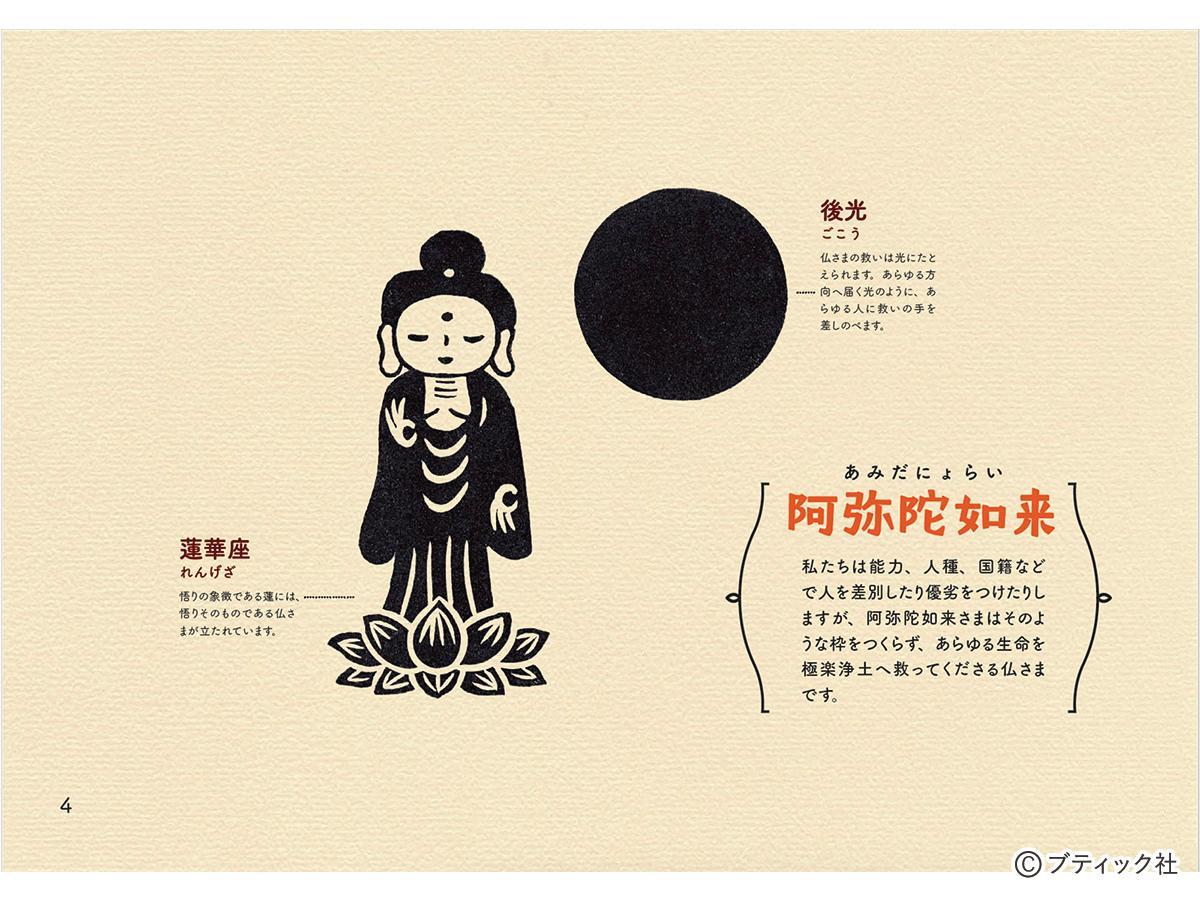 後光
ごこう
仏さまの救いは光にたと
えられます。あらゆる方
向へ届く光のように、あ
らゆる人に救いの手を
差しのべます。
あみだにょらい
阿弥陀如来
私たちは能力、人種、国籍など
で人を差別したり優劣をつけたりし
ますが、阿弥陀如来さまはそのよ
うな枠をつくらず、あらゆる生命を
極楽浄土へ救ってくださる仏さま
です。
蓮華座
れんげざ
悟りの象徴である蓮には、
悟りそのものである仏さ
まが立たれています。
4
©ブティック社